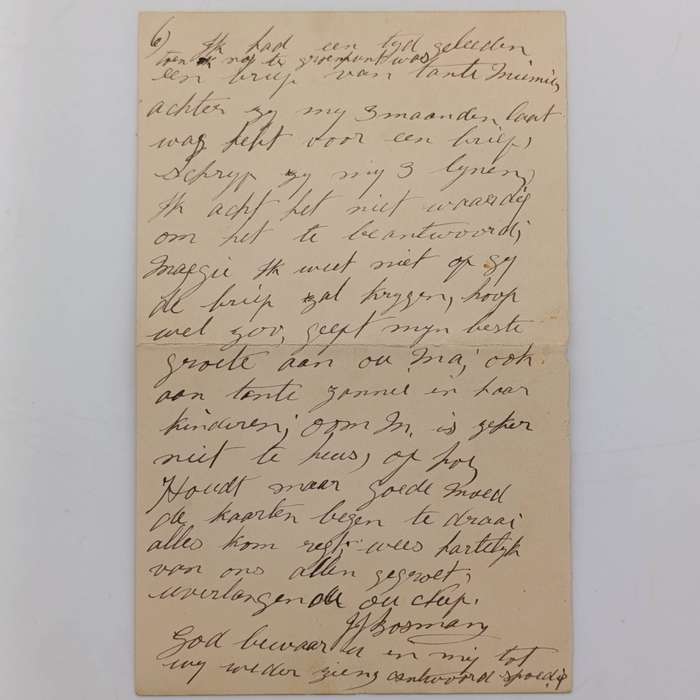 6) Ik had een tyd geleeden
toen ik nog te was
een brief van tante Miemie,
achter zy my 3 maanden laat
wag hebt voor een brief,
Schryf zy my 3 lynen,
Ik acht het niet waardig
om het te beantwoord,
Maggie Ik weet niet of gy
de brief zal krygen, hoop
wel zoo, geeft myn beste
groete aan ou Ma; ook
aan tante Sannie en haar
kinderen; Oom M. is zeker
niet te huis, of hoe,
Houdt maar goede moed
de kaarten begen te draai
alles kom regt, wees hartelyk
van ons allen gegroet;
uverlangende ou
JJ Bosman
God bewaar u en my tot
wy weder ziens antwoord spoedig